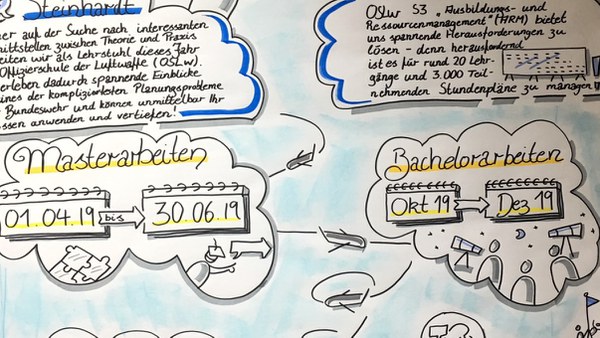 Steinhardt
auf der Suche nach interessanten
zwischen Theorie und Praxis
wir als Lehrstuhl dieses Jahr
Offizierschule der Luftwaffe (OSLw).
erleben dadurch spannende Einblicke
eines der kompliziertesten Planungsprobleme
Bundeswehr und können unmittelbar Ihr
anwenden und vertiefen!
OSLw S3 „Ausbildungs- und
Ressourcenmanagement" (HRM) bietet
uns spannende Herausforderungen zu
lösen - denn herausfordernd
ist es für rund 20 Lehr-
gänge und 3.000 Teil-
nehmenden Stundenpläne zu managen
Masterarbeiten
01.04.19 bis 30.06.19
Bachelorarbeiten
Okt 19 Dez 19